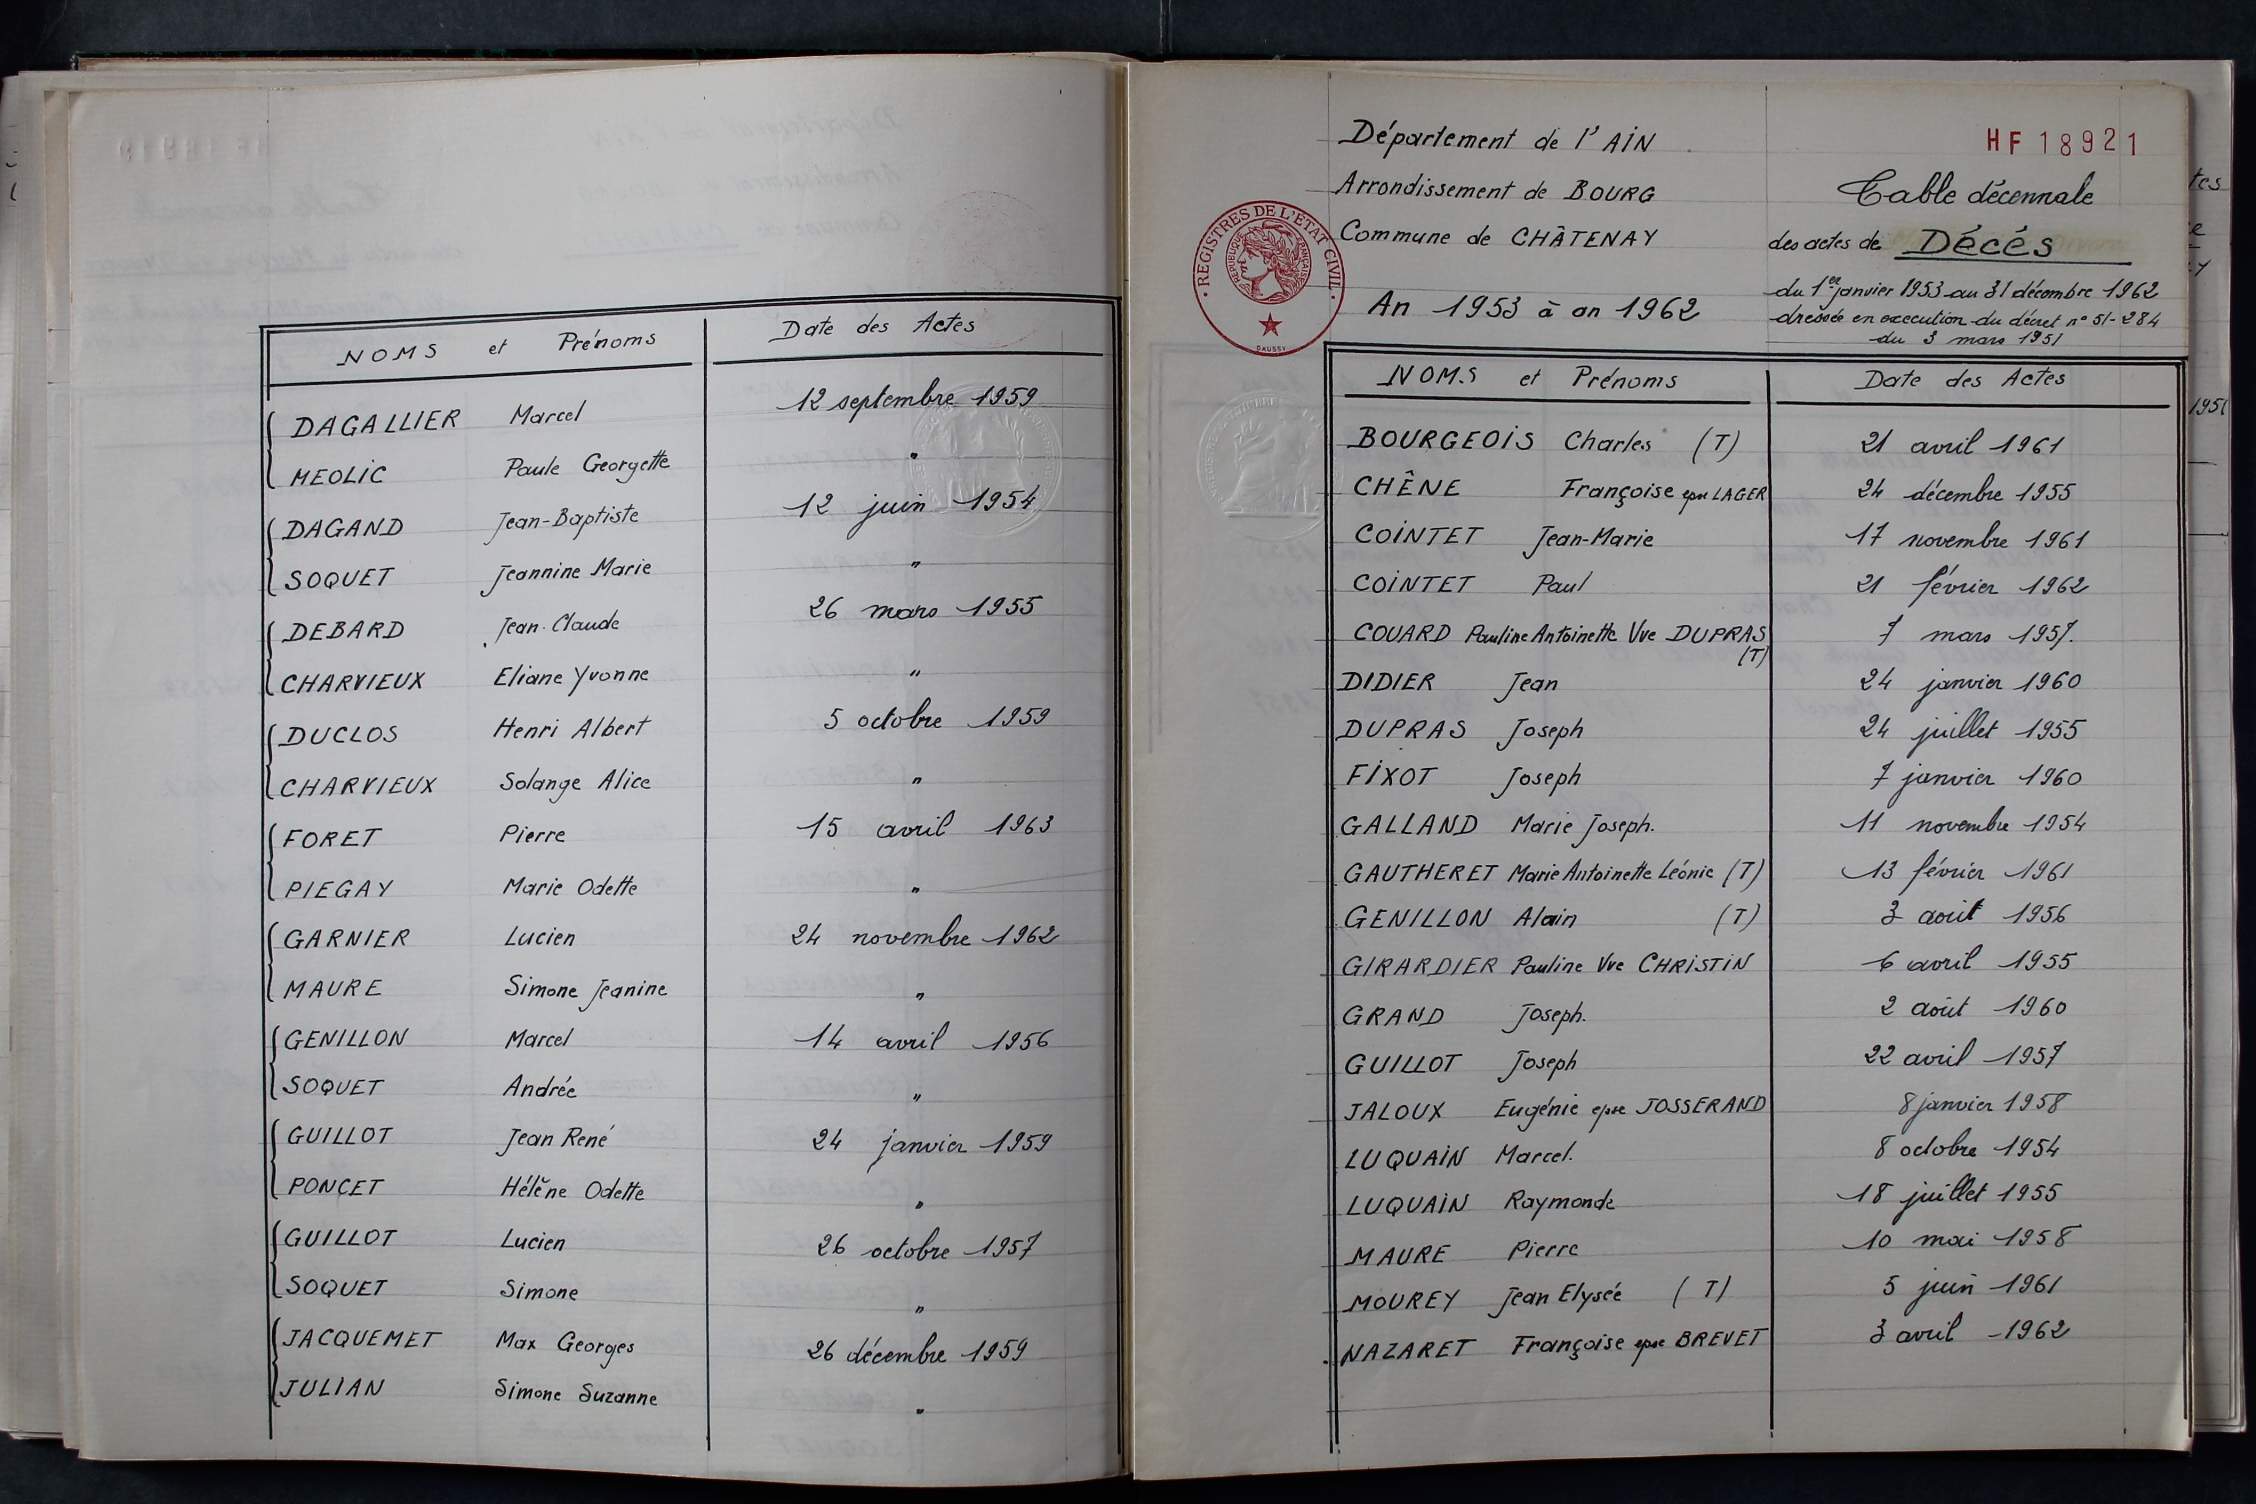 NOMS et Prénoms Date des Actes
DAGALLIER Marcel 12 septembre 1959
MEOLIC Paule Georgette "
DAGAND Jean-Baptiste 12 juin 1954
SOQUET Jeannine Marie "
DEBARD Jean-Claude 26 mars 1955
CHARVIEUX Eliane Yvonne "
DUCLOS Henri Albert 5 octobre 1959
CHARVIEUX Solange Alice "
FORET Pierre 15 avril 1963
PIEGAY Marie Odette "
GARNIER Lucien 24 novembre 1962
MAURE Simone Jeanine "
GENILLON Marcel 14 avril 1956
SOQUET Andrée "
GUILLOT Jean René 24 janvier 1959
PONCET Hélène Odette "
GUILLOT Lucien 26 octobre 1957
SOQUET Simone "
JACQUEMET Max Georges 26 décembre 1959
JULIAN Simone Suzanne "
Département de l'AIN
Arrondissement de BOURG
Commune de CHÂTENAY
An 1953 à an 1962
REGISTRES DE L'ETAT CIVIL
REPUBLIQUE FRANÇAISE
DAUSSY
HF 18921
Table décennale
des actes de Décés
du 1er janvier 1953 au 31 décembre 1962
dressée en execution du décret n° 51-284
du 3 mars 1951
NOMS et Prénoms Date des Actes
BOURGEOIS Charles (T) 21 avril 1961
CHÊNE Françoise epse LAGER 24 décembre 1955
COINTET Jean-Marie 17 novembre 1961
COINTET Paul 21 février 1962
COUARD Pauline Antoinette Vve DUPRAS (T) 7 mars 1957.
DIDIER Jean 24 janvier 1960
DUPRAS Joseph 24 juillet 1955
FIXOT Joseph 7 janvier 1960
GALLAND Marie Joseph. 11 novembre 1954
GAUTHERET Marie Antoinette Léonie (T) 13 février 1961
GENILLON Alain (T) 3 août 1956
GIRARDIER Pauline Vve CHRISTIN 6 avril 1955
GRAND Joseph. 2 août 1960
GUILLOT Joseph 22 avril 1957
JALOUX Eugénie epse JOSSERAND 8 janvier 1958
LUQUAIN Marcel. 8 octobre 1954
LUQUAIN Raymonde 18 juillet 1955
MAURE Pierre 10 mai 1958
MOUREY Jean Elysée (T) 5 juin 1961
NAZARET Françoise epse BREVET 3 avril 1962